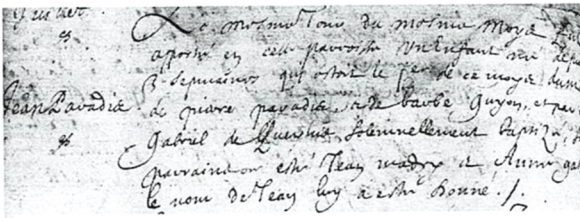 Le mesme Jour du mesme moys fut
aporté en cette parroisse un enfant né depuis
3 sepmaines qui estoit le 5er de ce moys
Jean Paradis de pierre paradis et de barbe guyon, et par
Gabriel de Querelus solemnellement baptizé
parrain on esté Jean madry et Anne
le nom de Jean luy a esté donné ./.